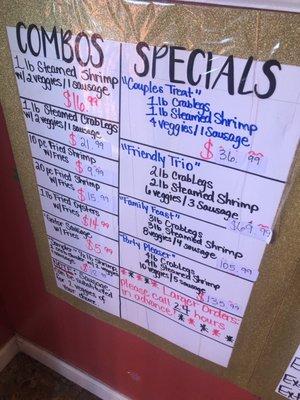 COMBOS
1 lb Steamed Shrimp
w/2 veggies/1 sausage
$16.99
1 lb Steamed Crab Legs
w/2 veggies/1 sausage
$21.99
10 pc Fried Shrimp
w/Fries
$9.99
20 pc Fried Shrimp
w/Fries
$15.99
1 lb Fried Oysters
w/Fries
$14.99
Sausage
w/Fries
$5.99
1 lb Shrimp
SPECIALS
"Couples Treat"
1 lb Crab Legs
1 lb Steamed Shrimp
4 veggies/1 Sausage
$36.99
"Friendly Trio"
2 lb Crab Legs
2 lb Steamed Shrimp
6 veggies/3 Sausage
$69.99
"Family Feast"
3 lb Crab Legs
3 lb Steamed Shrimp
8 veggies/4 sausage
105.99
"Party Pleaser"
4 lb Crab Legs
Steamed Shrimp
10 veggies/5 sausage
$135.99
Larger Orders
please call 24 hours
in advance.